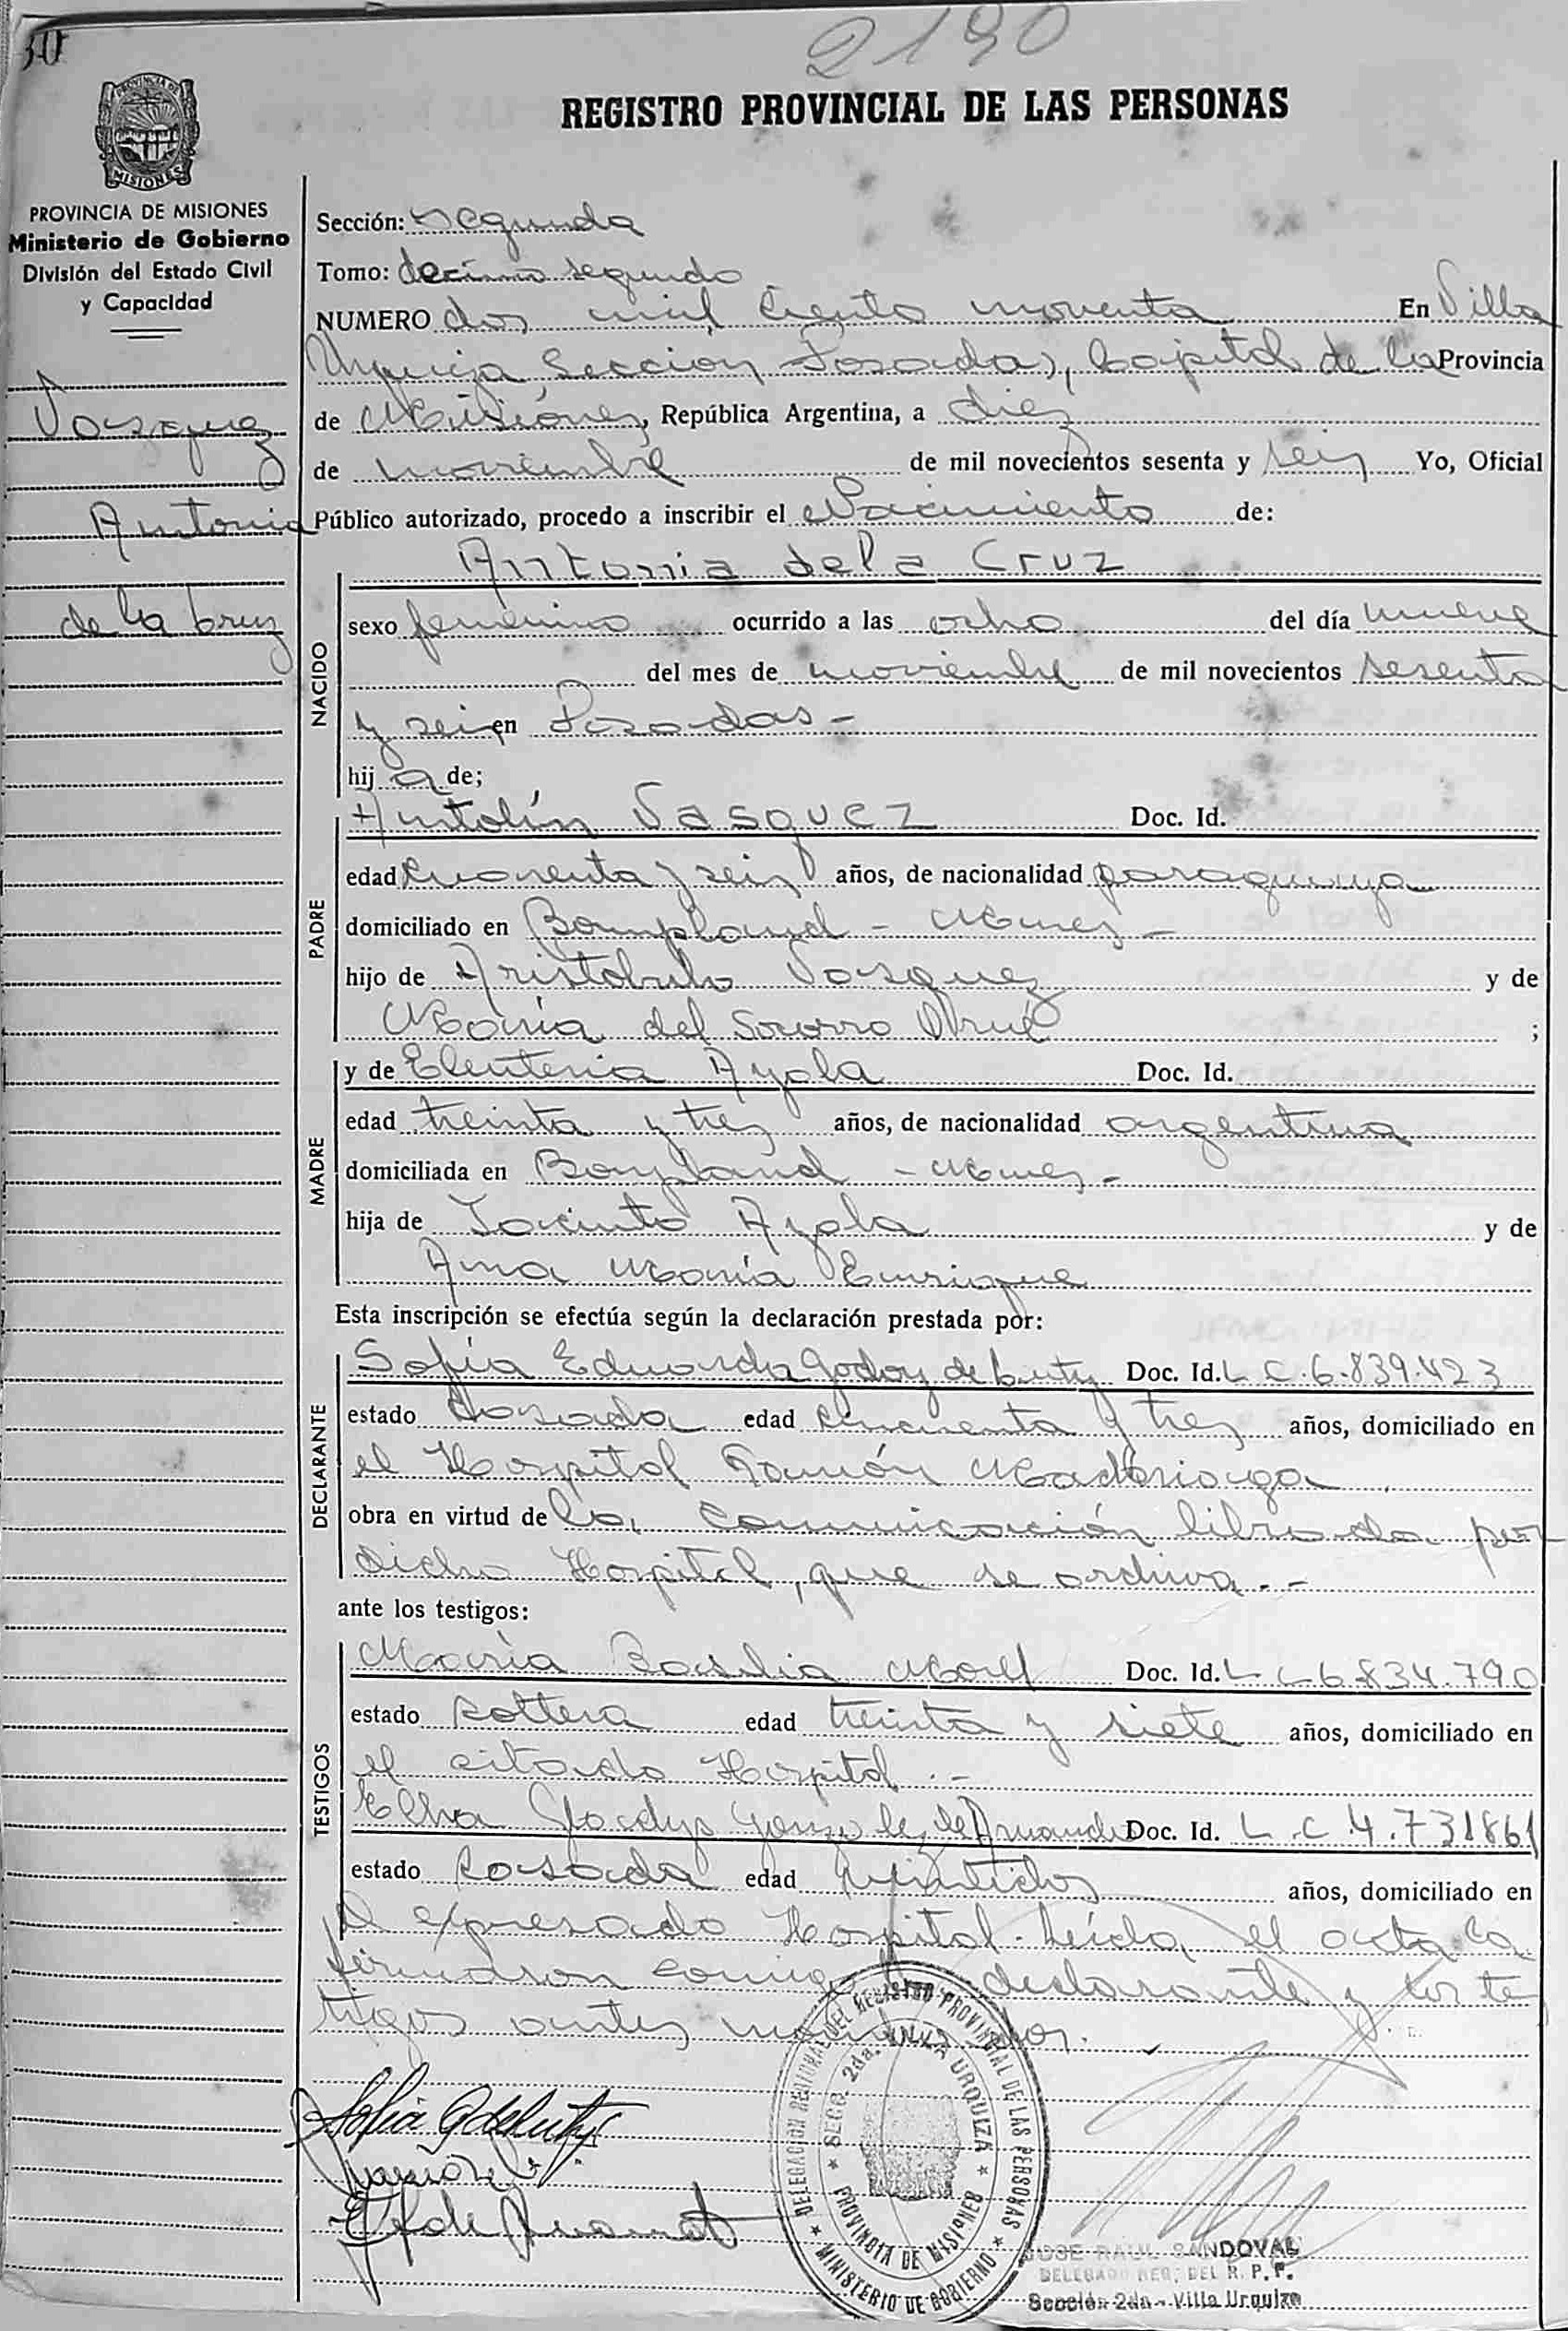 30
2190
REGISTRO PROVINCIAL DE LAS PERSONAS
PROVINCIA DE MISIONES
PROVINCIA DE MISIONES
Ministerio de Gobierno
División del Estado Civil
y Capacidad
Vasquez
Antonia
de la Cruz
Sección: segunda
Tomo: decimo segundo
NUMERO dos mil ciento noventa En Villa
Urquiza, Sección Posadas, Capital de la Provincia
de Misiones, República Argentina, a diez
de noviembre de mil novecientos sesenta y seis Yo, Oficial
Público autorizado, procedo a inscribir el Nacimiento de:
NACIDO
Antonia de la Cruz
sexo femenino ocurrido a las ocho del día nueve
del mes de noviembre de mil novecientos sesenta
y seis en Posadas -
hij a de;
PADRE
Antolín Vasquez Doc. Id.
edad cuarenta y seis años, de nacionalidad paraguaya
domiciliado en Bompland - Mnes -
hijo de Aristobulo Vasquez y de
María del Socorro ;
MADRE
y de Eleuteria Ayala Doc. Id.
edad treinta y tres años, de nacionalidad argentina
domiciliada en Bompland - Mnes -
hija de Jacinto Ayala y de
Ana María Enrique
Esta inscripción se efectúa según la declaración prestada por:
DECLARANTE
Sofía Eduarda Godoy de Doc. Id. L C 6.839.423
estado casada edad cincuenta y tres años, domiciliado en
el Hospital Ramón Madariaga
obra en virtud de la comunicación librada por
dicho Hospital, que se archiva. -
ante los testigos:
TESTIGOS
María Basilia Doc. Id. L C 6.834.790
estado soltera edad treinta y siete años, domiciliado en
el citado Hospital . -
Elba Gladys Gonzalez de Doc. Id. L.C 4.731861
estado casada edad veintidos años, domiciliado en
el expresado Hospital. Leída el acta la
firmaron conmigo declarante y los tes
tigos antes nombrados.
DELEGACION REGIONAL DEL REGISTRO PROVINCIAL DE LAS PERSONAS
SECC. 2da. VILLA URQUIZA
PROVINCIA DE MISIONES
MINISTERIO DE GOBIERNO
JOSE RAUL SANDOVAL
DELEGADO REG. DEL R. P. P.
Sección 2da - Villa Urquiza